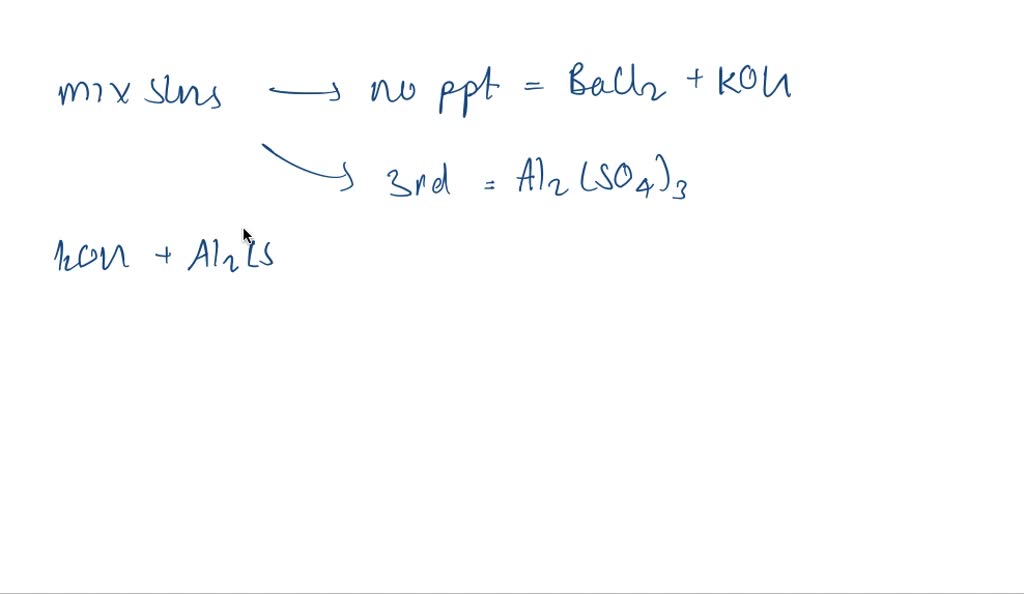 mix slns → no ppt = BaCl2 + KOH
→ 3rd = Al2(SO4)3
KOH + Al2(S